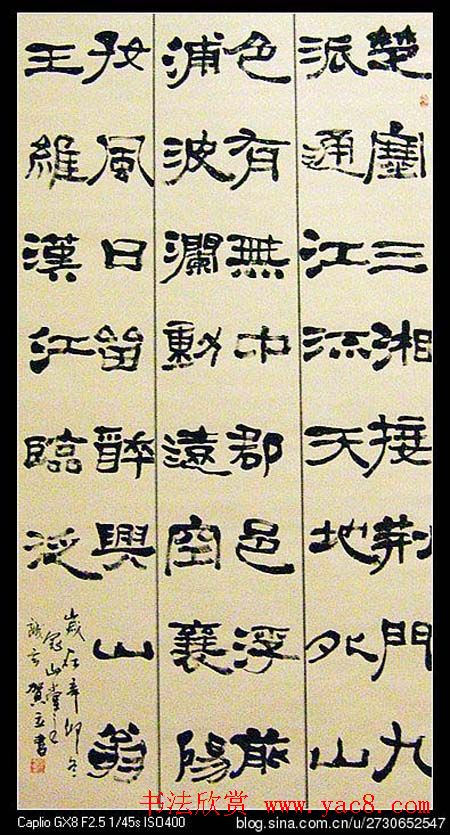 楚塞三湘接荆門九
派通江流天地外山
色有無中郡邑浮前
浦波瀾動遠空襄陽
好風日留醉與山翁
王維漢江臨泛
歲在辛卯冬
书法欣赏 www.yac8.com
Caplio GX8 F2.5 1/45s ISO400
blog.sina.com.cn/u/2730652547